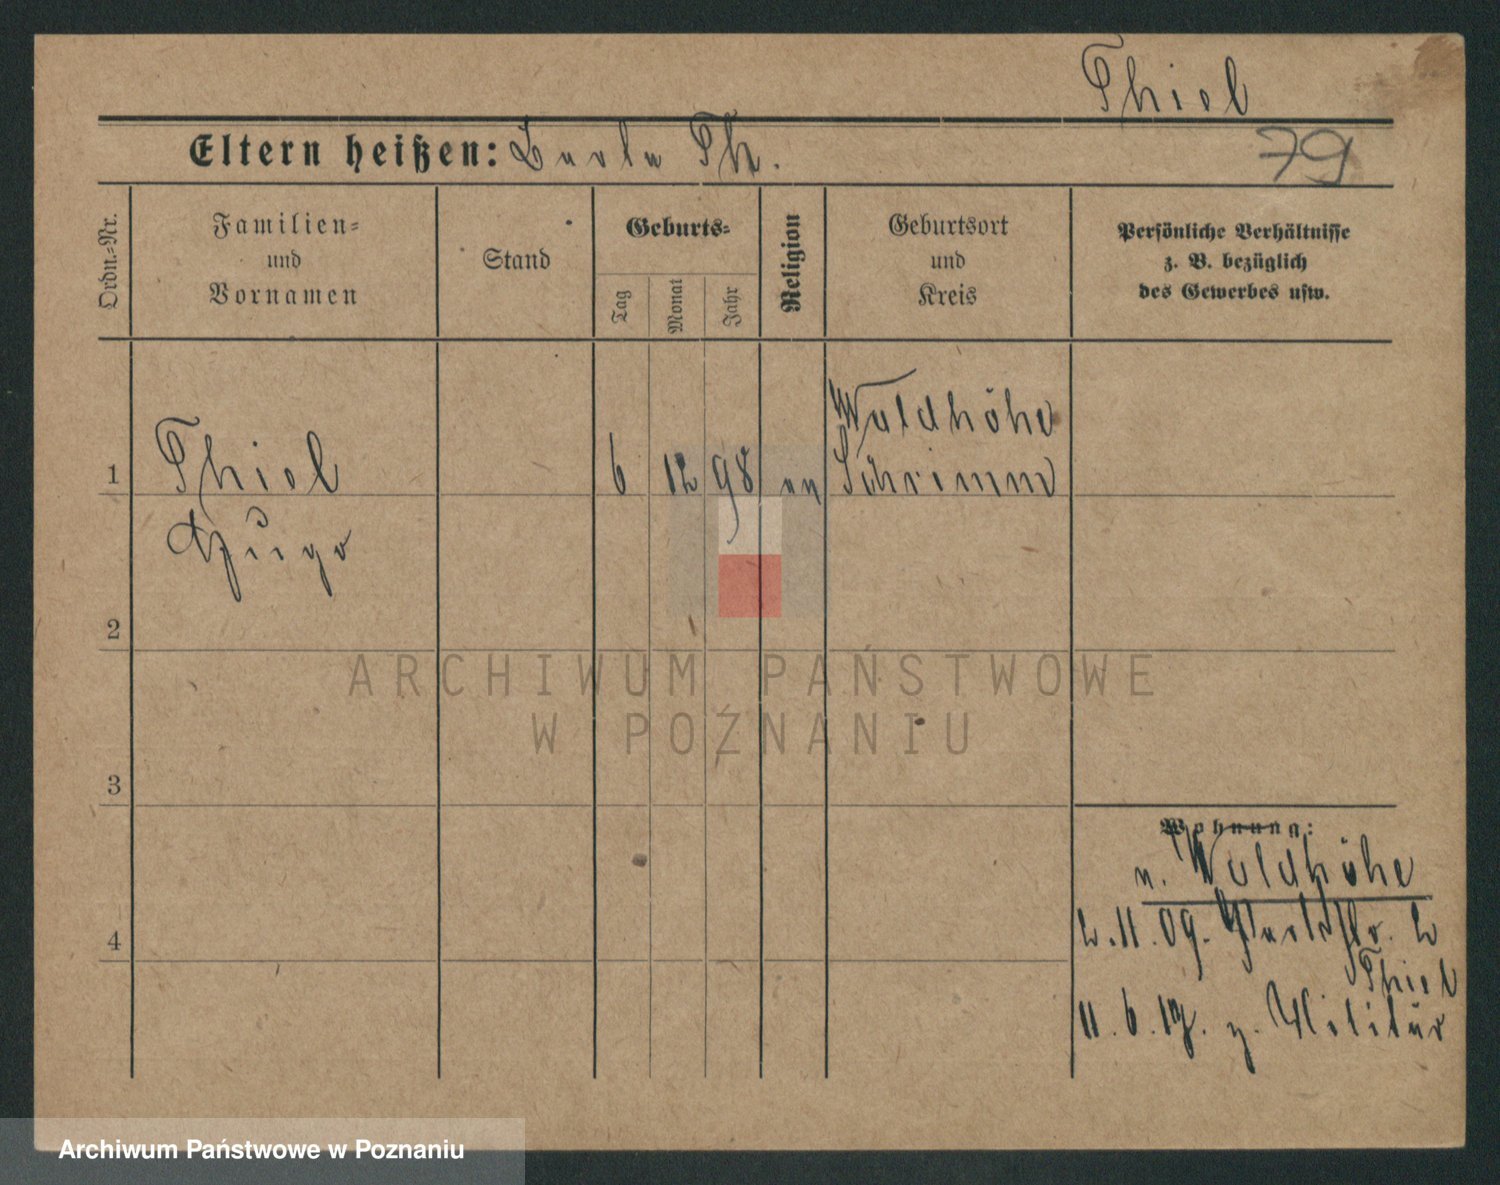 Thiel
Eltern heißen: Th.
79
Ordn.-Nr.
Familien-
und
Vornamen
Stand
Geburts-
Tag
Monat
Jahr
Religion
Geburtsort
und
Kreis
Persönliche Verhältnisse
z. B. bezüglich
des Gewerbes usw.
1
Thiel
6 12 98 ev Waldhöhe
Schrimm
Hugo
2
3
4
Wohnung:
n. Waldhöhe
2.11.09. Parkstr. 2
Thiel
11.6.17. z. Militär
ARCHIWUM PAŃSTWOWE
W POZNANIU
Archiwum Państwowe w Poznaniu